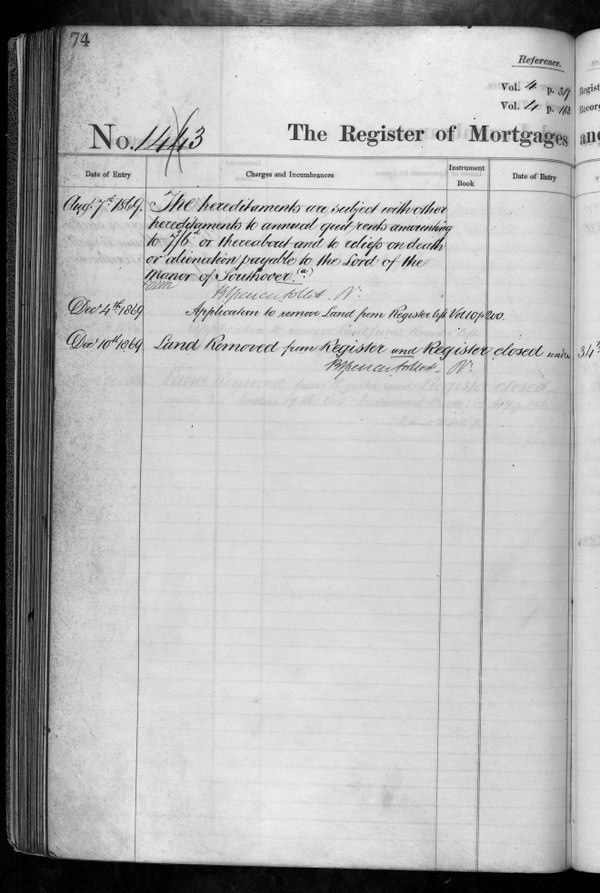 74
Reference.
Vol. 4 p. 319
Vol. 4 p. 162
No. 1443 The Register of Mortgages and
Regist
Record
Date of Entry Charges and Incumbrances Instrument Book Date of Entry
Augt 7th 1869. The hereditaments are subject with other
hereditaments to annual quit rents amounting
to 7/6d or thereabout and to reliefs on death
or alienation payable to the Lord of the
Manor of Southover. (a)
B Spencer Follett Rr.
Decr 4th 1869 Application to remove Land from Register Vol 10 p 200
Decr 10th 1869 Land Removed from Register and Register closed under 34th
B Spencer Follett Rr.